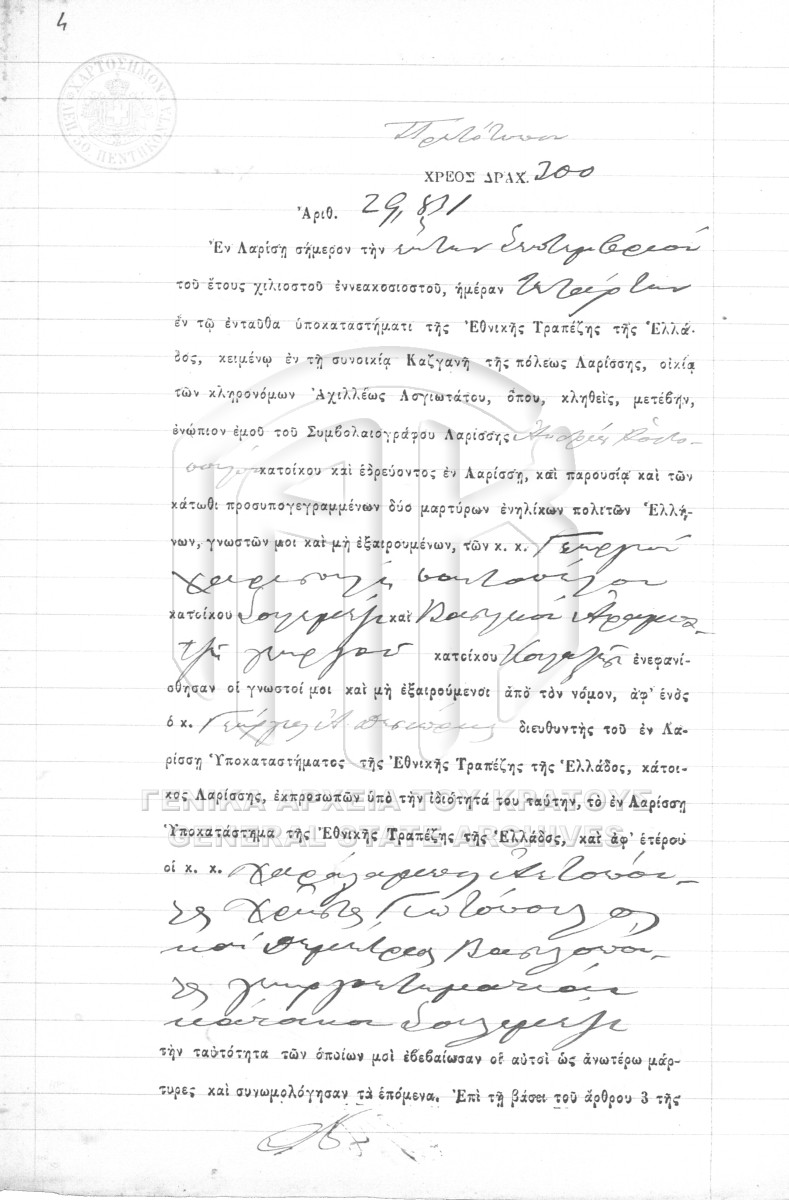 4
ΧΑΡΤΟΣΗΜΟΝ
ΛΕΠ. 50 ΠΕΝΤΗΚΟΝΤΑ
Πρωτότυπον
ΧΡΕΟΣ ΔΡΑΧ. 300
Ἀριθ. 29,831
Ἐν Λαρίσῃ σήμερον τὴν ἕκτην Σεπτεμβρίου
τοῦ ἔτους χιλιοστοῦ ἐννεακοσιοστοῦ, ἡμέραν Τετάρτην
ἐν τῷ ἐνταῦθα ὑποκαταστήματι τῆς Ἐθνικῆς Τραπέζης τῆς Ἑλλά-
δος, κειμένῳ ἐν τῇ συνοικίᾳ Καζγανῆ τῆς πόλεως Λαρίσσης, οἰκίᾳ
τῶν κληρονόμων Ἀχιλλέως Λογιωτάτου, ὅπου, κληθεὶς, μετέβην,
ἐνώπιον ἐμοῦ τοῦ Συμβολαιογράφου Λαρίσσης Ἀνδρέου
κατοίκου καὶ ἑδρεύοντος ἐν Λαρίσσῃ, καὶ παρουσίᾳ καὶ τῶν
κάτωθι προσυπογεγραμμένων δύο μαρτύρων ἐνηλίκων πολιτῶν Ἑλλή-
νων, γνωστῶν μοι καὶ μὴ ἐξαιρουμένων, τῶν κ. κ. Γεωργίου
κατοίκου καὶ Βασιλείου
γεωργοῦ κατοίκου ἐνεφανί-
σθησαν οἱ γνωστοί μοι καὶ μὴ ἐξαιρούμενοι ἀπὸ τὸν νόμον, ἀφ' ἑνὸς
ὁ κ. Γεώργιος Α. διευθυντὴς τοῦ ἐν Λα-
ρίσσῃ Ὑποκαταστήματος τῆς Ἐθνικῆς Τραπέζης τῆς Ἑλλάδος, κάτοι-
κος Λαρίσσης, ἐκπροσωπῶν ὑπὸ τὴν ἰδιότητά του ταύτην, τὸ ἐν Λαρίσσῃ
ΓΕΝΙΚΑ ΑΡΧΕΙΑ ΤΟΥ ΚΡΑΤΟΥΣ
Ὑποκατάστημα τῆς Ἐθνικῆς Τραπέζης τῆς Ἑλλάδος, καὶ ἀφ' ἑτέρου
GENERAL STATE ARCHIVES
οἱ κ. κ. Χαράλαμπος
Χρῆστος
καὶ Δημήτριος
κάτοικοι
τὴν ταὐτότητα τῶν ὁποίων μοὶ ἐβεβαίωσαν οἱ αὐτοὶ ὡς ἀνωτέρω μάρ-
τυρες καὶ συνωμολόγησαν τὰ ἑπόμενα. Ἐπὶ τῇ βάσει τοῦ ἄρθρου 3 τῆς